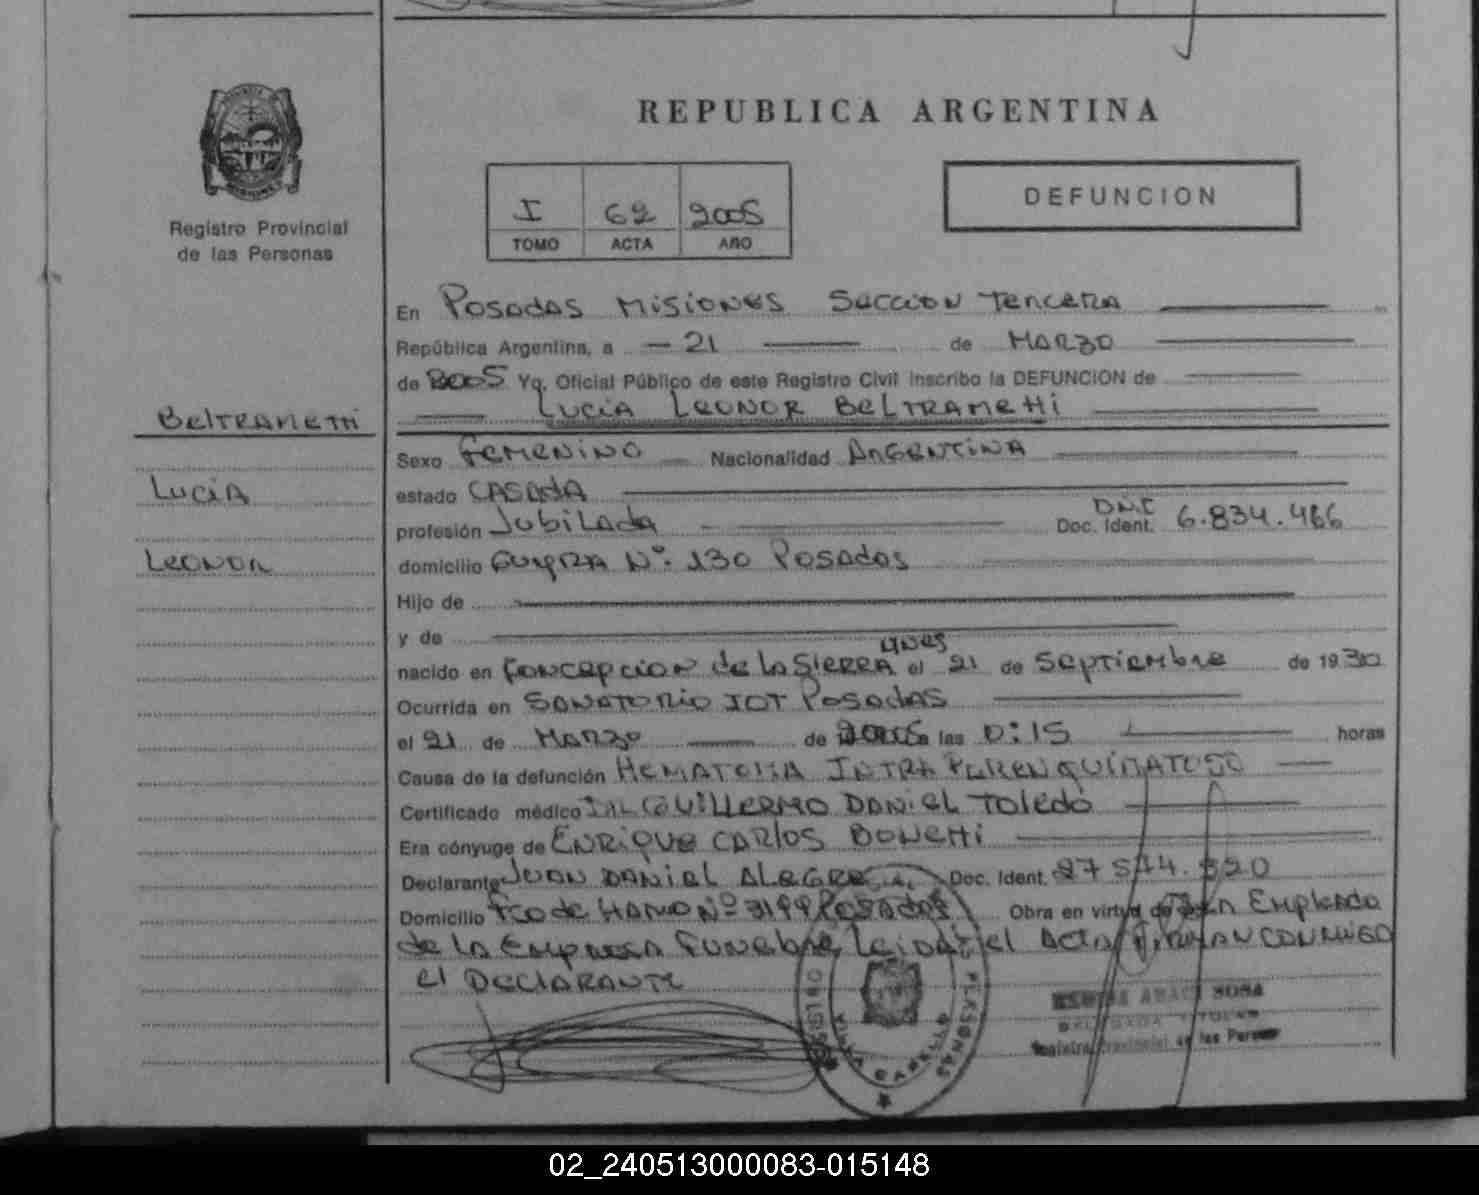 REPUBLICA ARGENTINA
Registro Provincial
de las Personas
I 62 2005
TOMO ACTA AÑO
DEFUNCION
En Posadas Misiones Seccion Tercera
República Argentina, a 21 de Marzo
de 2005 Yo, Oficial Público de este Registro Civil inscribo la DEFUNCION de
Lucia Leonor Beltrametti
Beltrametti
Lucia
Leonor
Sexo Femenino Nacionalidad Argentina
estado Casada
profesión Jubilada Doc. Ident. D.N.I 6.834.466
domicilio Guayra Nº 130 Posadas
Hijo de
y de
nacido en Concepcion de la Sierra Mnes el 21 de Septiembre de 1930
Ocurrida en Sanatorio IOT Posadas
el 21 de Marzo de 2005 a las 0:15 horas
Causa de la defunción Hematoma Intra Parenquimatoso
Certificado médico Guillermo Daniel Toledo
Era cónyuge de Enrique Carlos Bonetti
Declarante Juan Daniel Alegre Doc. Ident. 27 544.320
Domicilio Fco de Haro Nº 3199 Posadas Obra en virtud de Empleado
de la Empresa Funebre Leida el Acta Firman conmigo
el Declarante
REGISTRO PERSONAS
VILLA CABELLO
SOSA
DELEGADA TITULAR
Registro Provincial de las Personas
02_240513000083-015148